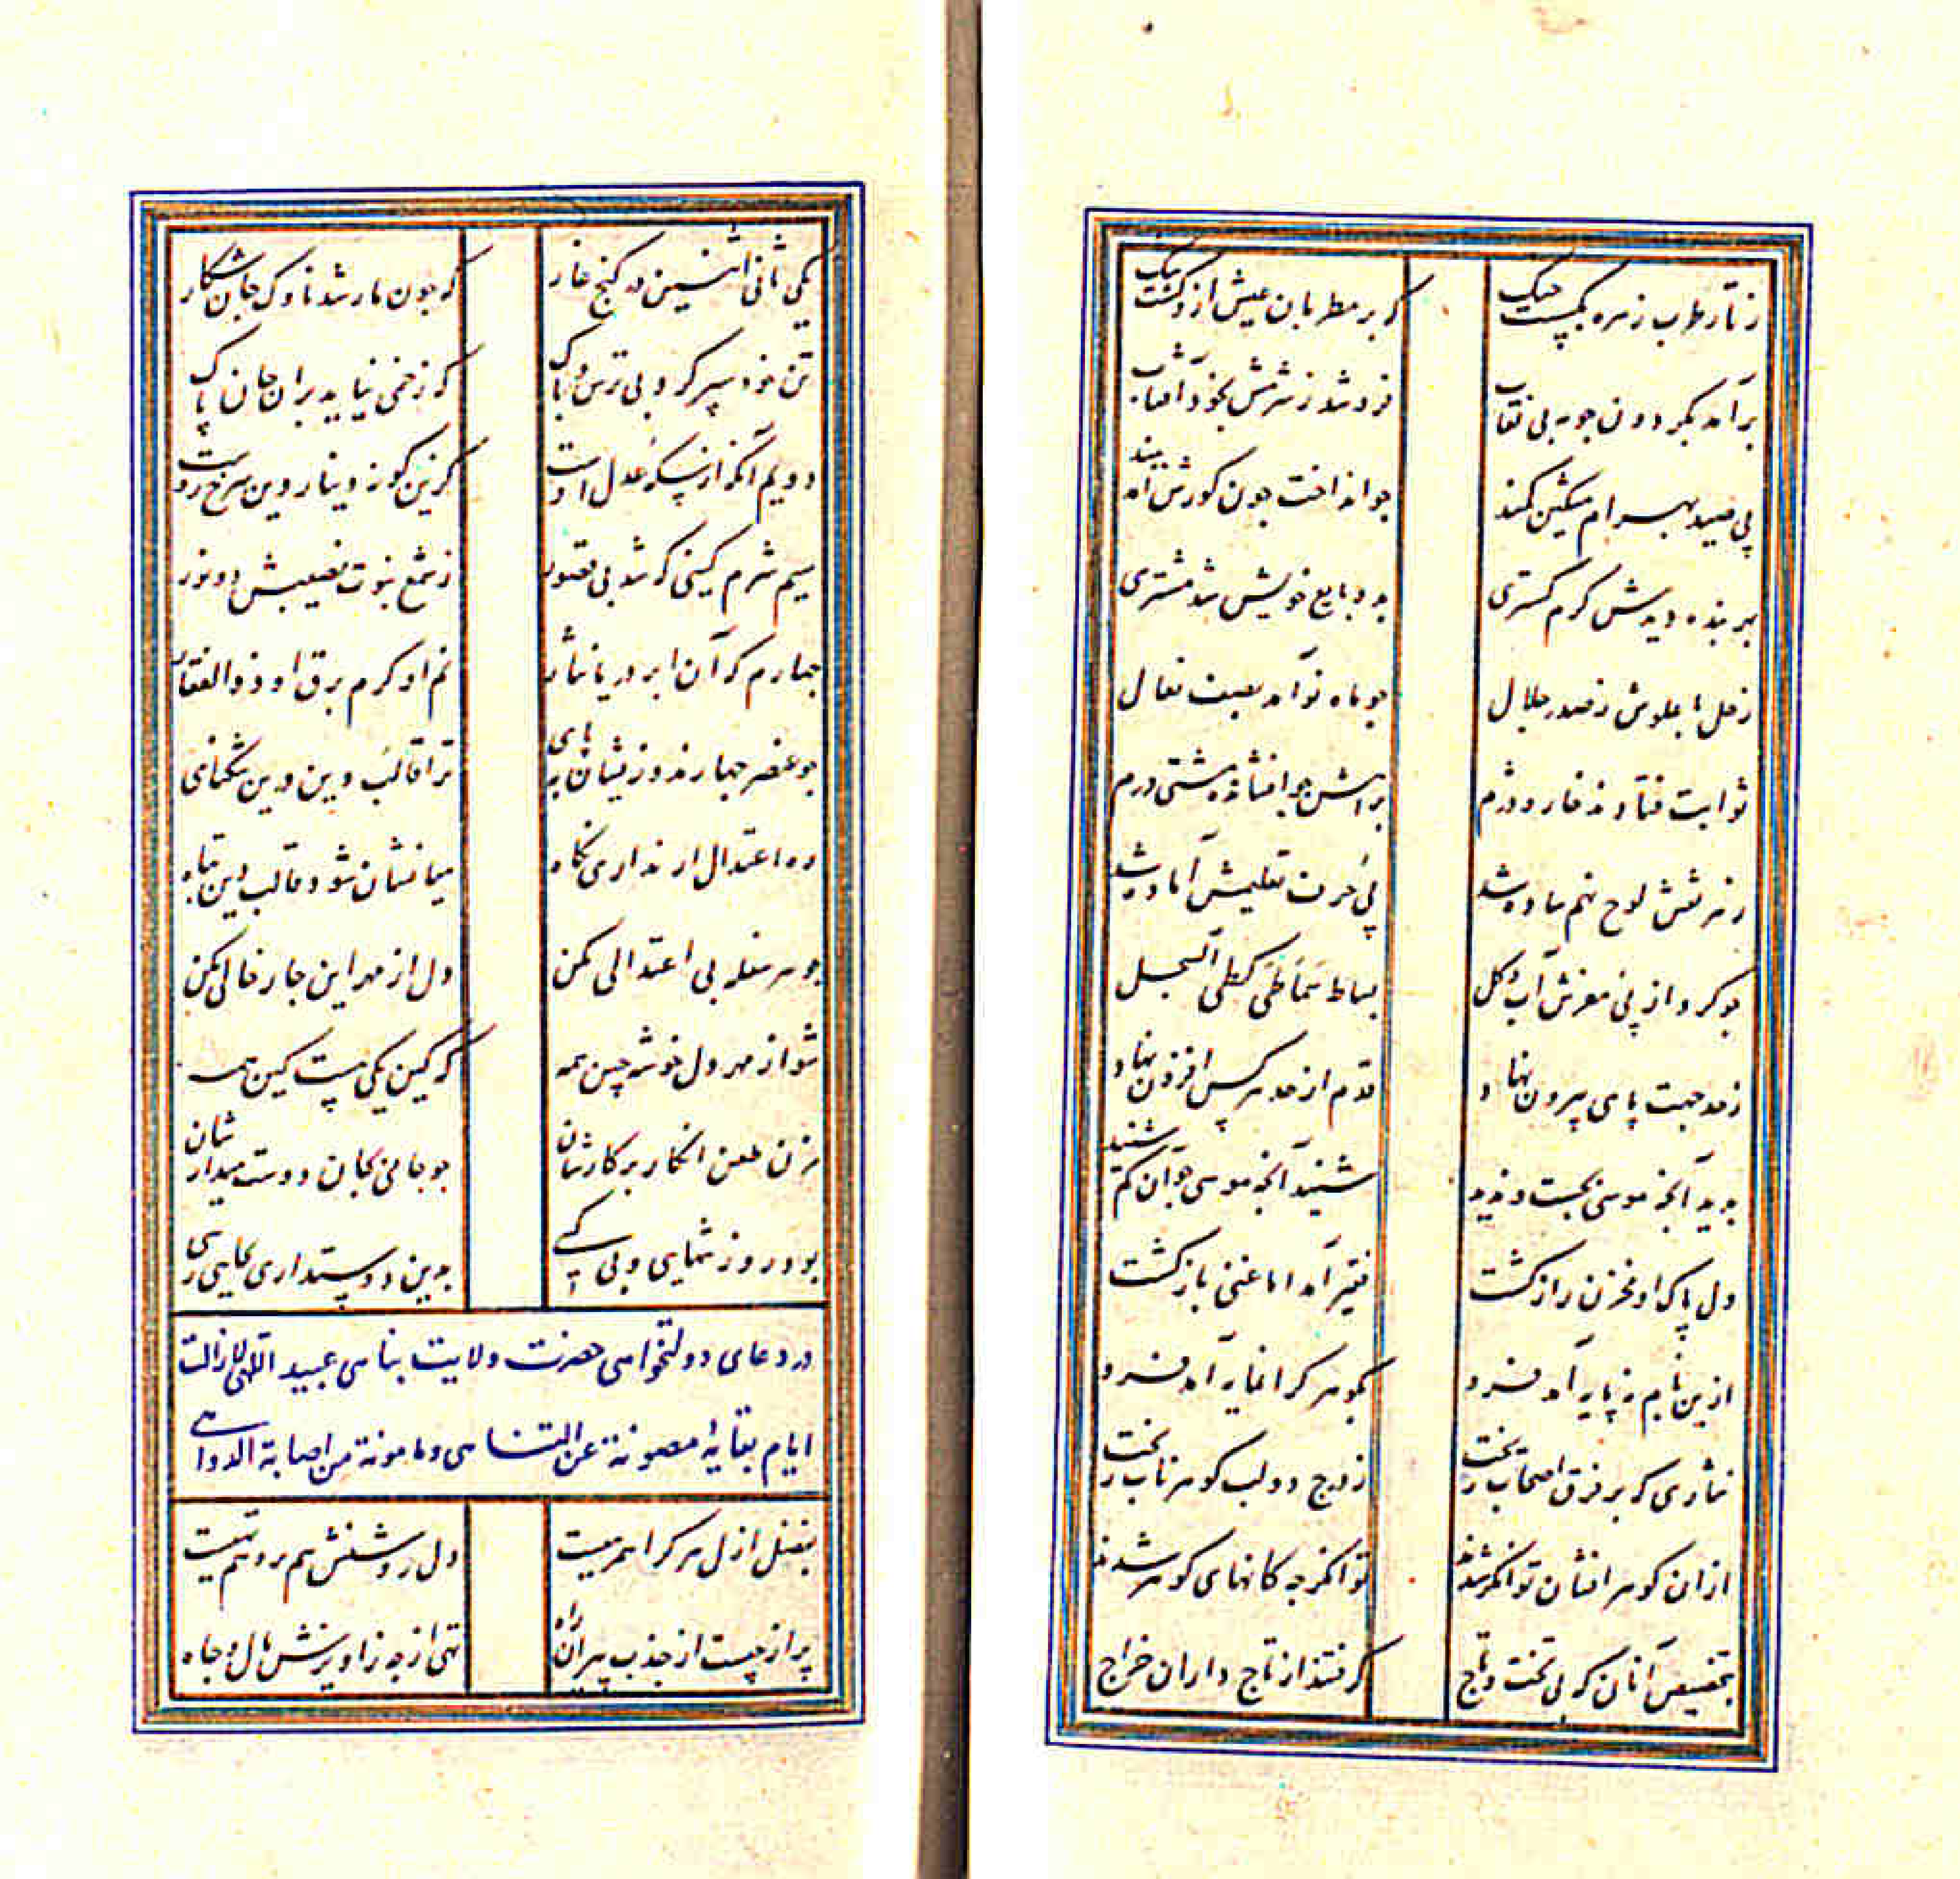 ز تار طرب زهره بگسست چنگ
که بر مطربان عیش ازو گشت تنگ
برآمد بگردون چو مه بی نقاب
فرو شد ز شرمش بخود آفتاب
پی صید بهرام مشکین کمند
چو انداخت چون گورش آمد ببند
بهر بنده دیدش کرم گستری
به بیع خویش شد مشتری
زحل با علوش ز صدر جلال
چو ماه نو آمد بصف نعال
ثوابت فتاده ز فار و دژم
براهش چو افشانده مشتی درم
ز هر نقش لوح نهم ساده شد
پی حرف نعلینش آماده شد
چو کرد از پی مفرش آب و گل
بساط سماطی کطی السجل
ز حد جهت پای بیرون نهاد
قدم از حد هر کس افزون نهاد
بدید آنچه موسی بجست و ندید
شنید آنچه موسی چو آن کم شنید
دل پاک او مخزن راز گشت
فقیر آمد اما غنی باز گشت
ازین بام نه پایه آمد فرود
بگوهر گرانمایه آمد فرود
نثاری که بر فرق اصحاب ریخت
ز درج دو لب گوهر ناب ریخت
ازان گوهر افشان توانگر شدند
توانگر چه کانهای گوهر شدند
بتخصیص آنان که بی تخت و تاج
گرفتند از تاج داران خراج
یکی ثانی اثنین در کنج غار
که چون مار شد ناوک جان شکار
تن خود سپر کرد بی ترس و باک
که زخمی نیاید بران جان پاک
دویم آنکه از سکه عدل اوست
کزین گونه دینار دین سرخ روست
سیم شرم گینی که شد بی قصور
ز شمع نبوت نصیبش دو نور
چهارم که آن ابر دریا نثار
نم او کرم برق او ذوالفقار
چو عنصر چهارند وزیشان بپای
ترا قالب دین درین تنگنای
ره اعتدال ار نداری نگاه
میانشان شود قالب دین تباه
چو هر سفله بی اعتدالی مکن
دل از مهر این چار خالی مکن
شو از مهر دل خوشه چین همه
که کین یکی هست کین همه
مزن طعن انکار بر کارشان
چو جانی بجان دوست میدارشان
بود روز تنهایی و بی کسی
بدین دوستداری بجایی رسی
در دعای دولتخواهی حضرت ولایت پناهی عبید اللهی لازالت
ایام بقایه مصونة عن التناهی ومامونة من اصابة الدواهی
بفضل ازل هر کرا همرهیست
دل روشنش همره و همرهیست
پر از چیست از جذب پیران راه
تهی از چه ز اویزش مال و جاه